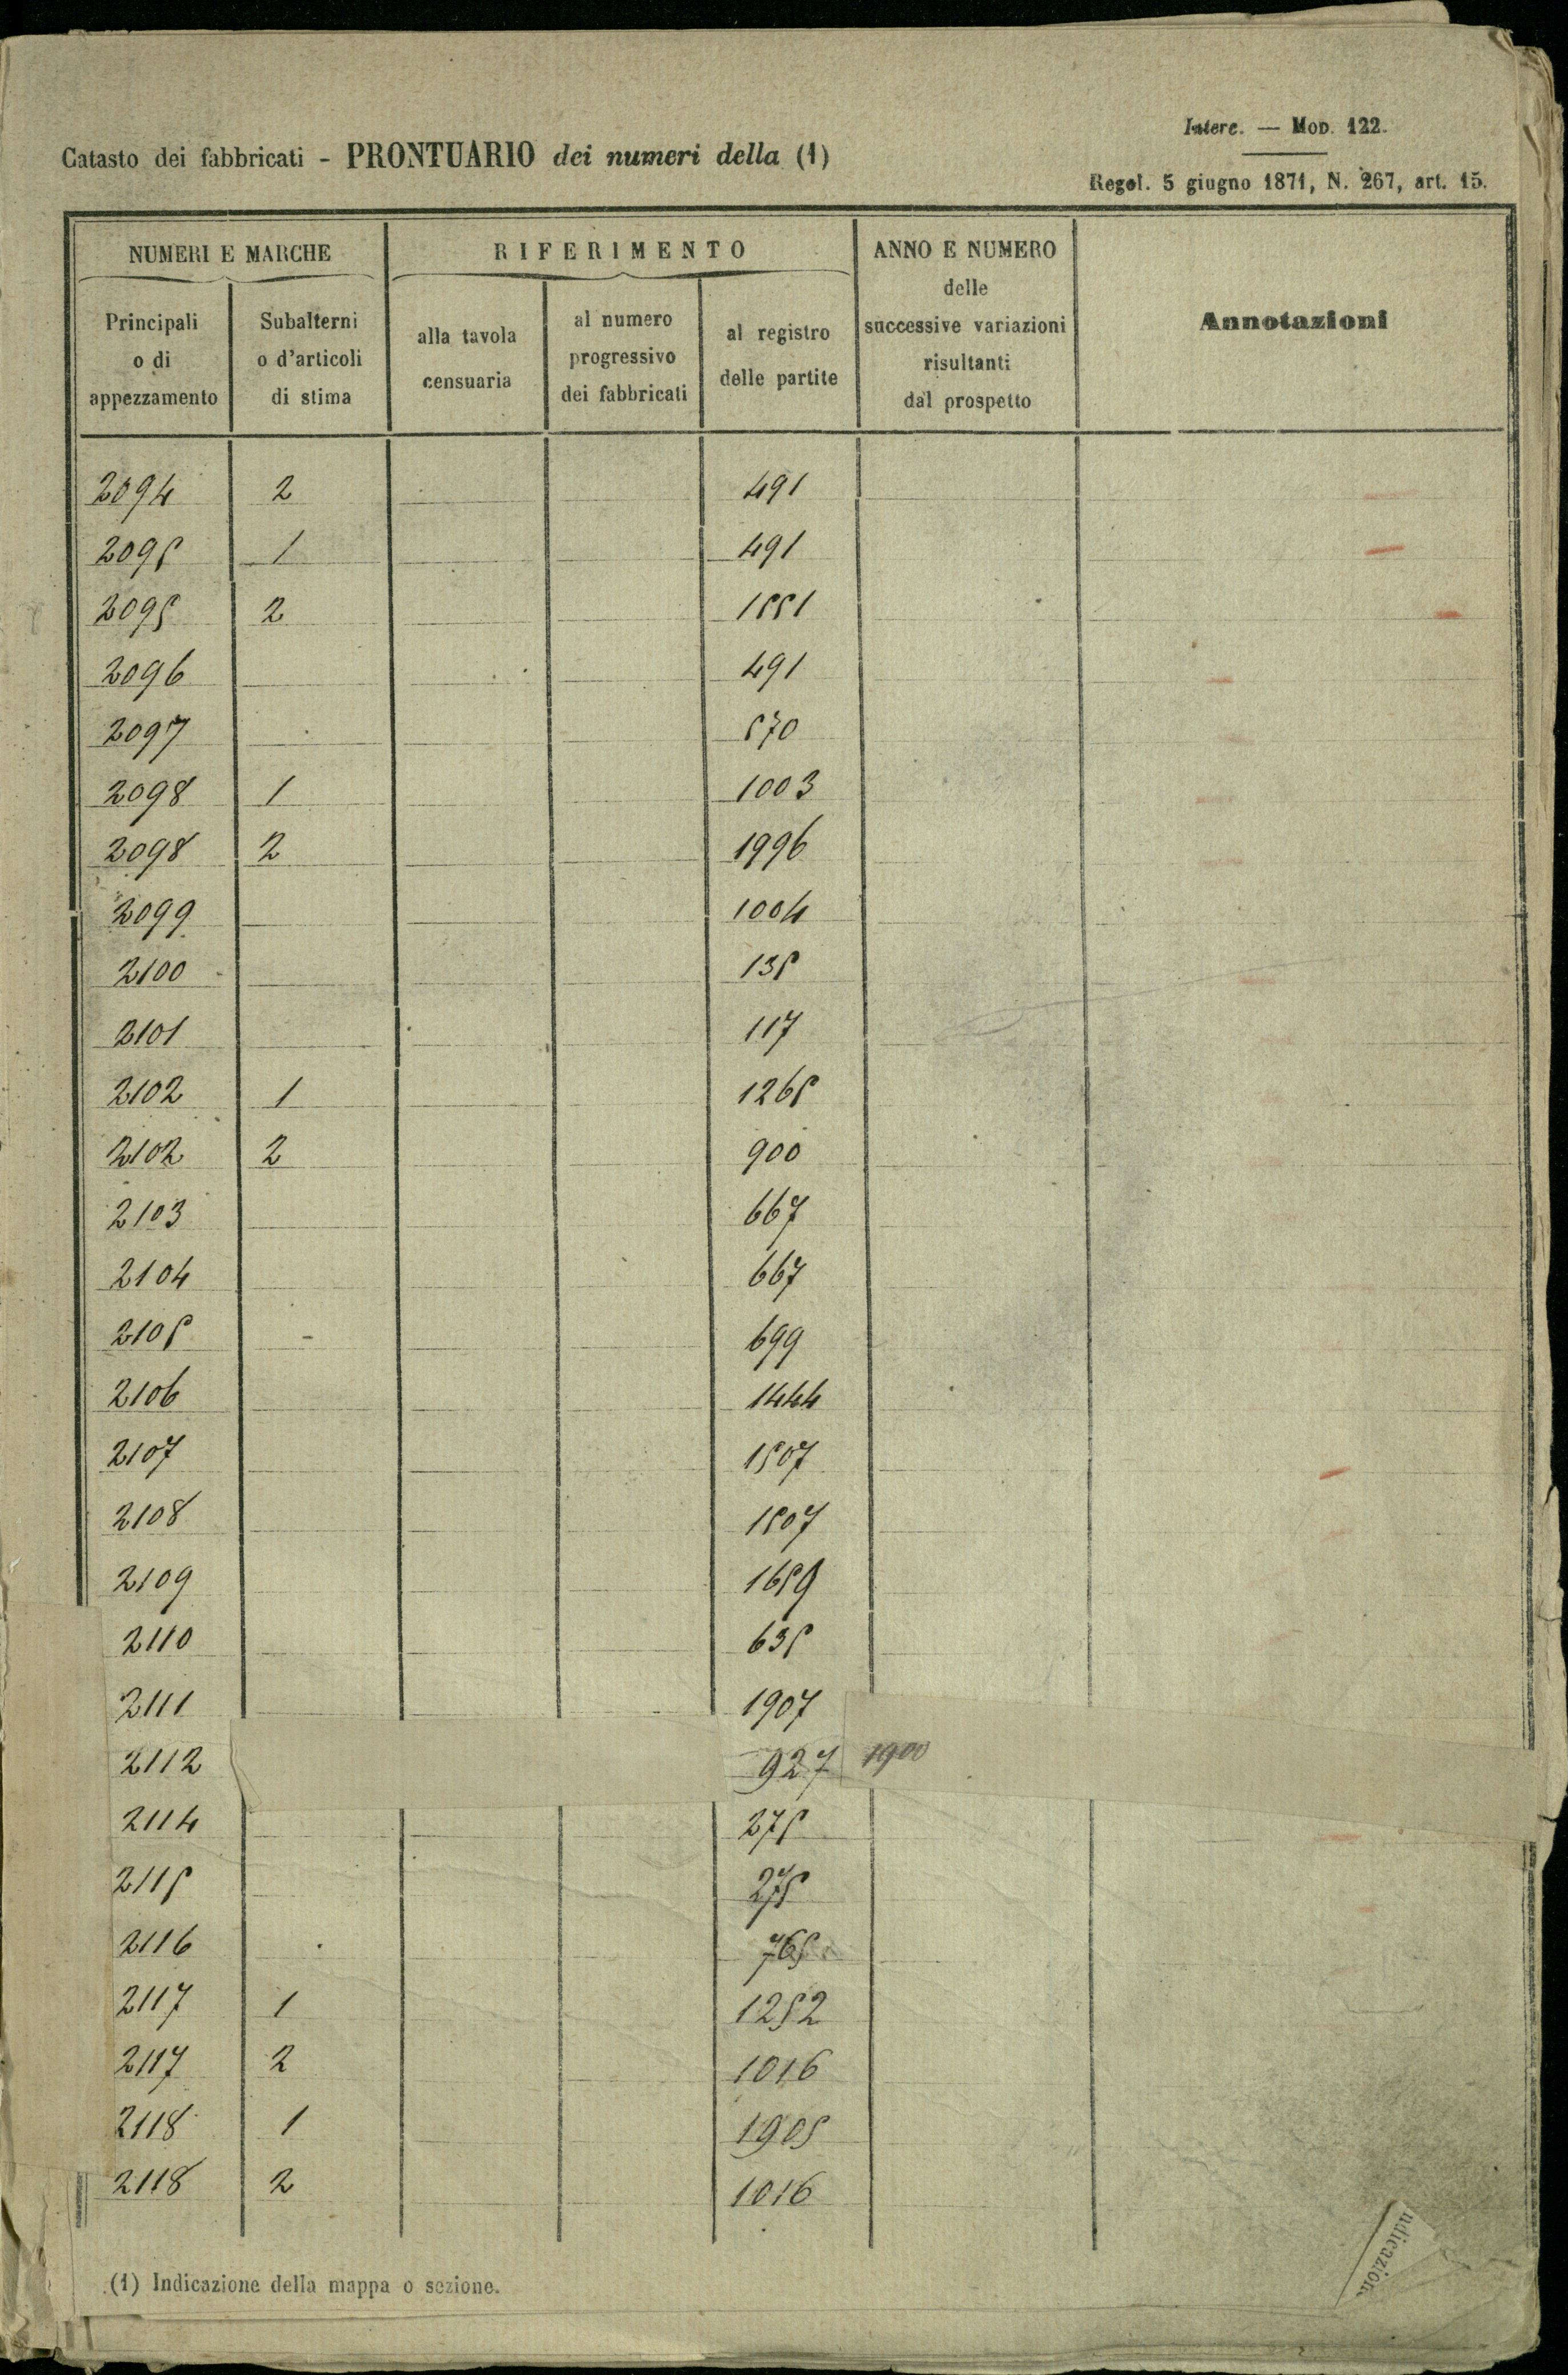 Interc. — Mod. 122.
Catasto dei fabbricati - PRONTUARIO dei numeri della (1)
Regol. 5 giugno 1871, N. 267, art. 15.
NUMERI E MARCHE RIFERIMENTO ANNO E NUMERO delle successive variazioni risultanti dal prospetto Annotazioni
Principali o di appezzamento Subalterni o d'articoli di stima alla tavola censuaria al numero progressivo dei fabbricati al registro delle partite
2094 2 491
2095 1 491
2095 2 1551
2096 491
2097 570
2098 1 1003
2098 2 1996
2099 1004
2100 135
2101 117
2102 1 1265
2102 2 900
2103 667
2104 667
2105 699
2106 1444
2107 1507
2108 1507
2109 1659
2110 635
2111 1907
2112 927 1900
2114 275
2115 275
2116 765
2117 1 1252
2117 2 1016
2118 1 1905
2118 2 1016
(1) Indicazione della mappa o sezione.
ndicazion